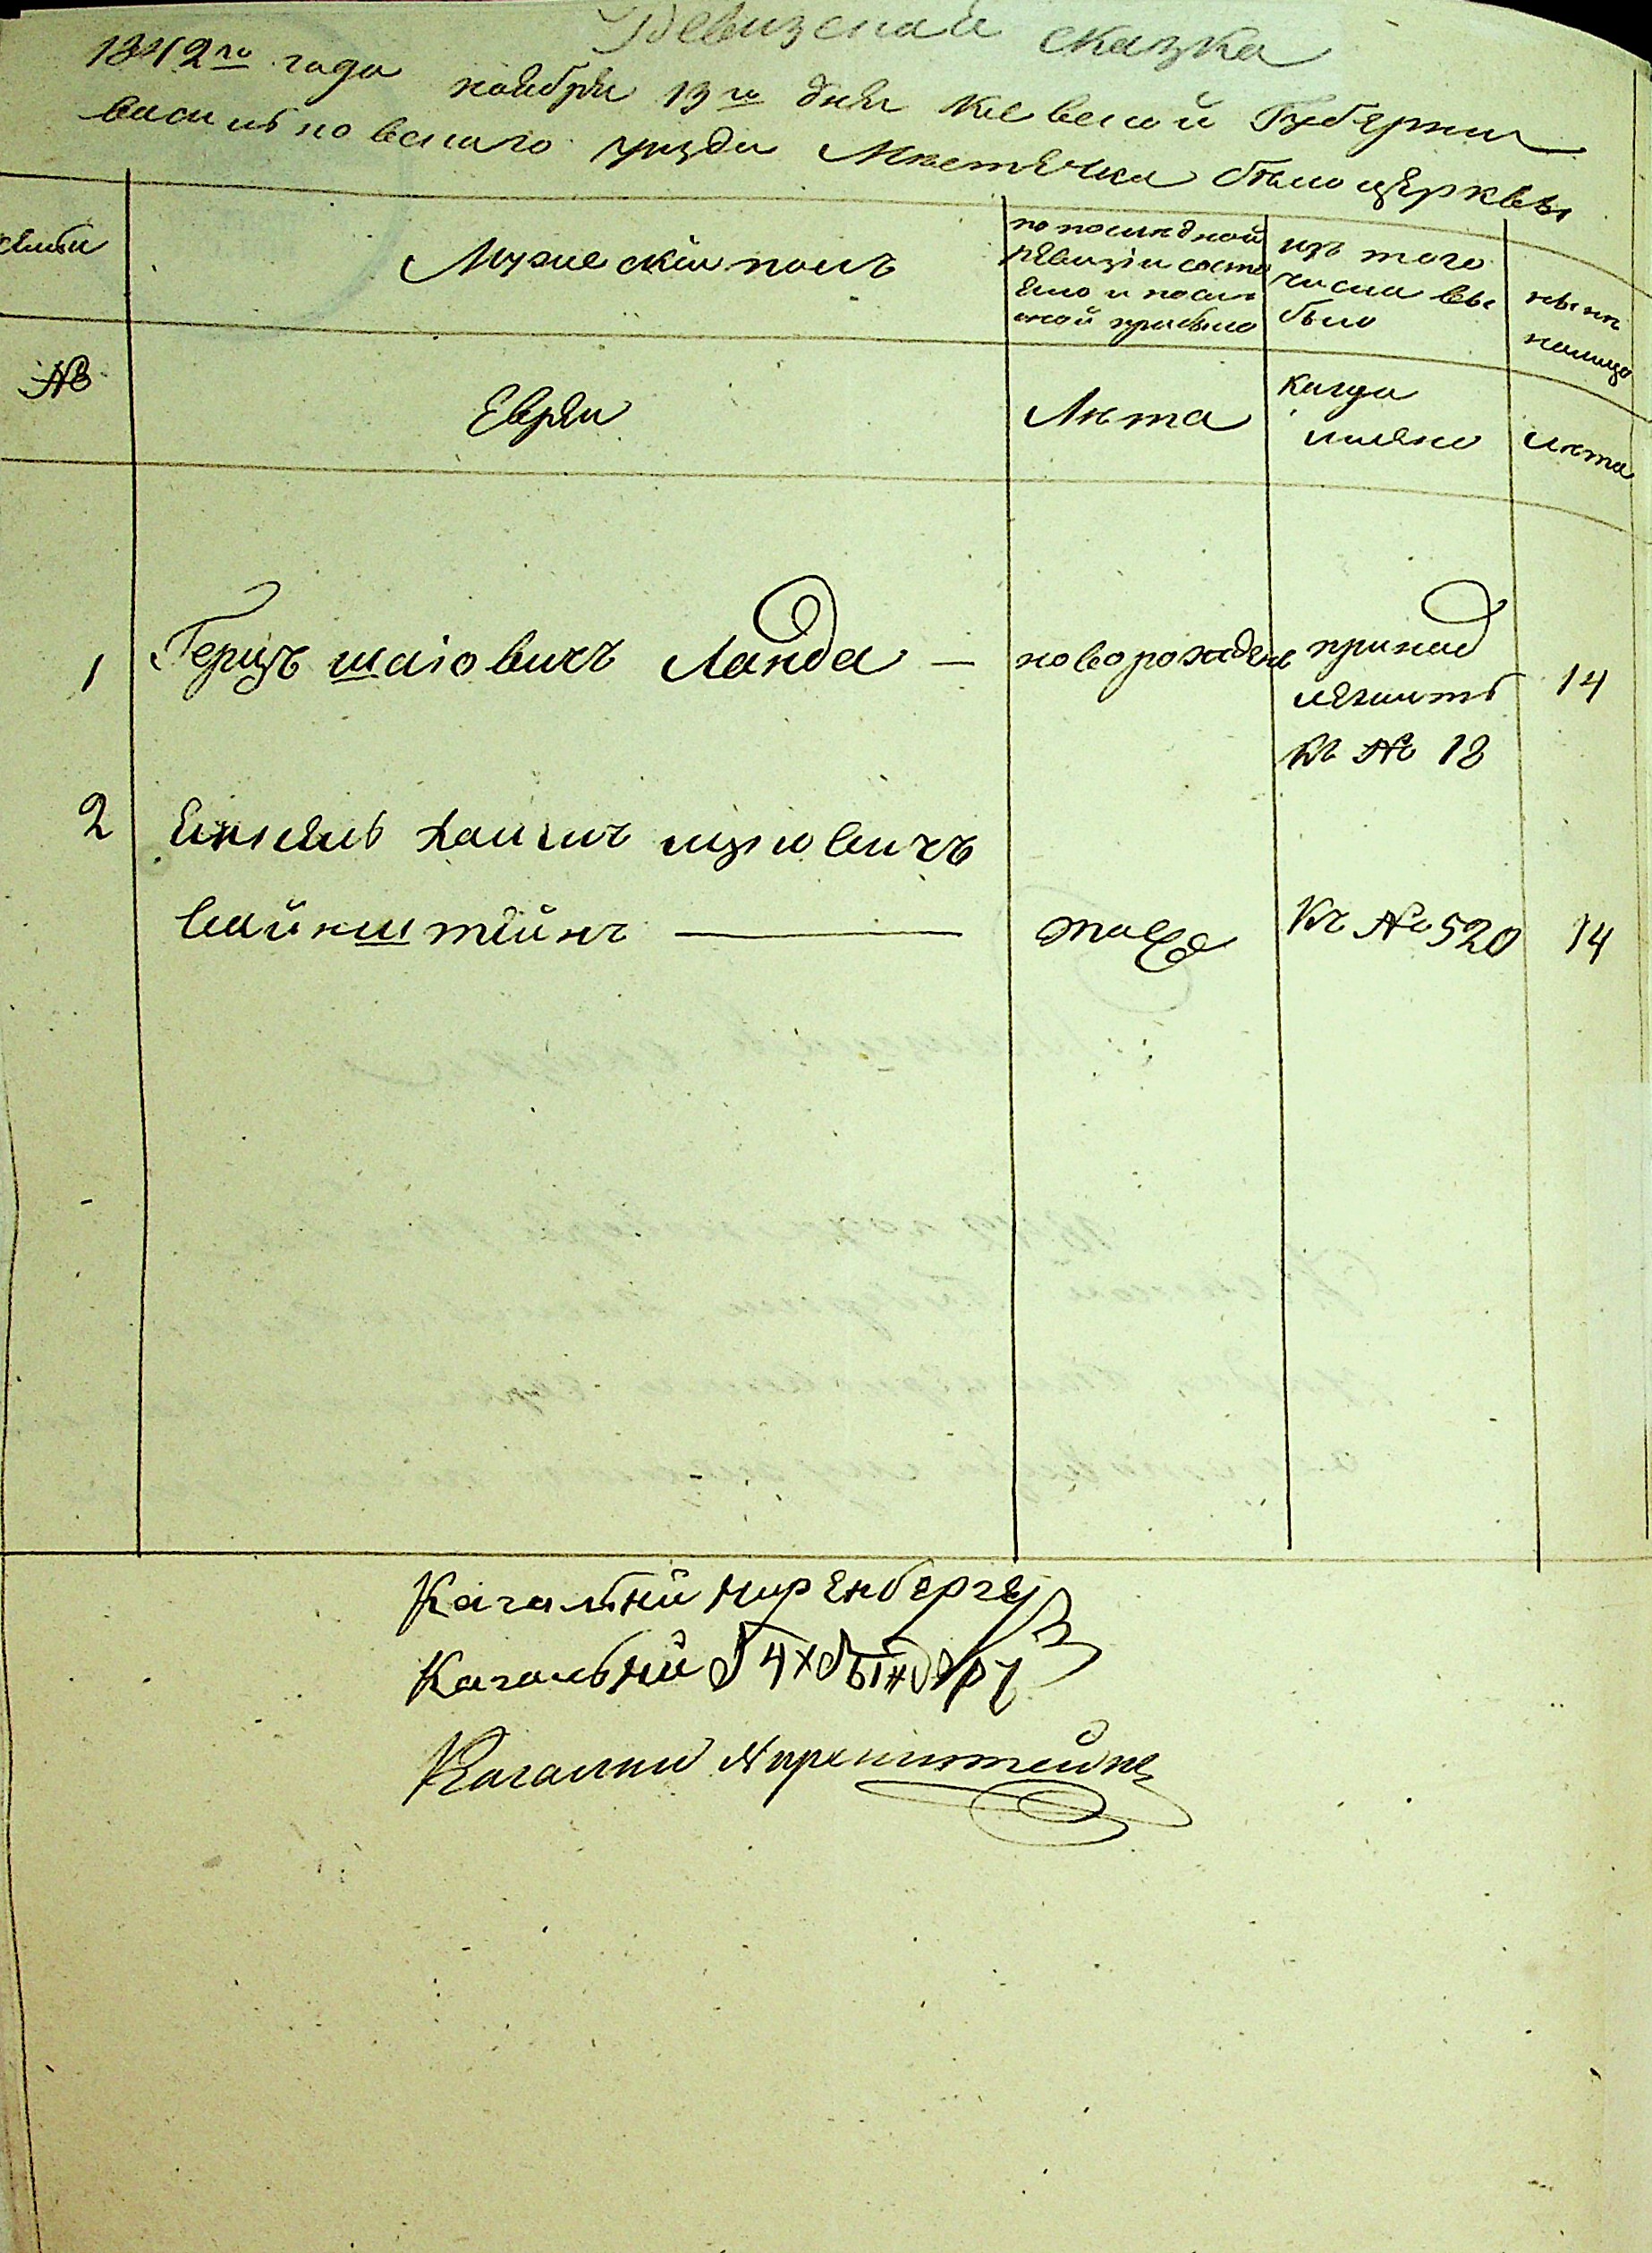 Ревизская сказка
1842го года ноября 13го дня Киевской Губернии
васильковскаго уезда Местечка белоцерквы
семьи
Мужескій полъ
по последной
ревизіи состо
яло и после
оной прибыло
изъ того
числа вы
было
ныне
налицо
№
Евреи
Лета
когда
имено
лета
1 Герцъ шаіовичъ Ланда — новорожденъ принад
лежитъ
къ № 18
14
2 хаимъ
вайнштейнъ — тоже къ № 520 14
Кагальний
Кагальний
Кагалний